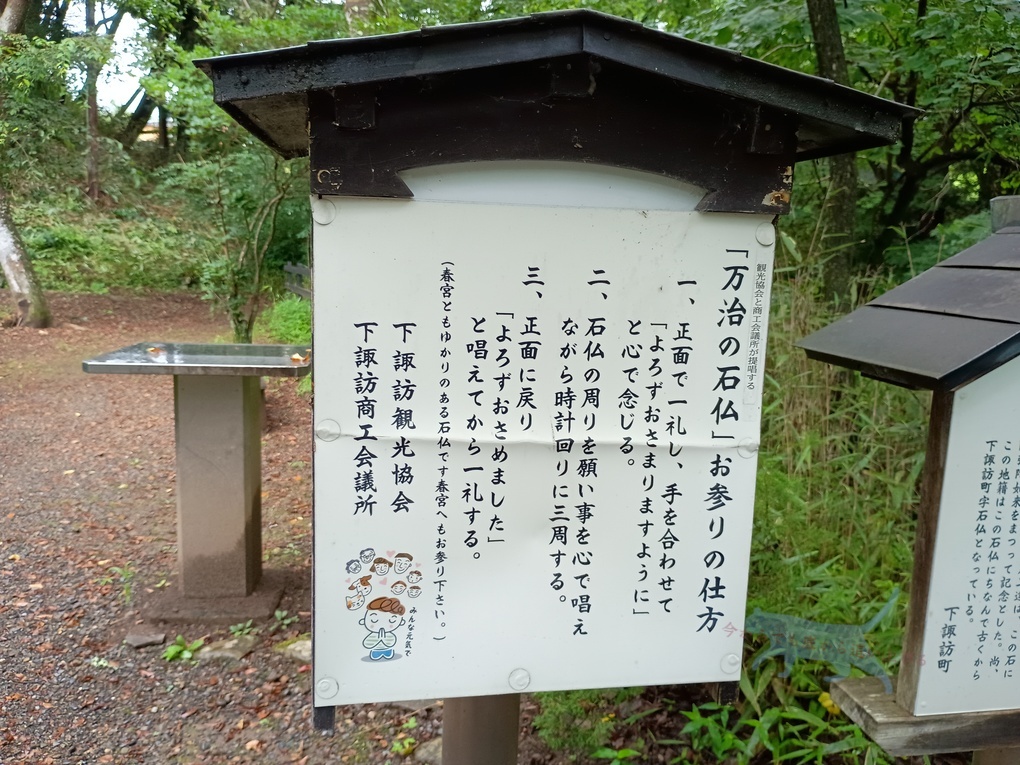 観光協会と商工会議所が提唱する
「万治の石仏」お参りの仕方
一、正面で一礼し、手を合わせて
「よろずおさまりますように」
と心で念じる。
二、石仏の周りを願い事を心で唱え
ながら時計回りに三周する。
三、正面に戻り
「よろずおさめました」
と唱えてから一礼する。
(春宮ともゆかりのある石仏です春宮へもお参り下さい。)
下諏訪観光協会
下諏訪商工会議所
みんな元気で
この石に
この地籍はこの石仏にちなんで古くから
下諏訪町字石仏となっている。
下諏訪町